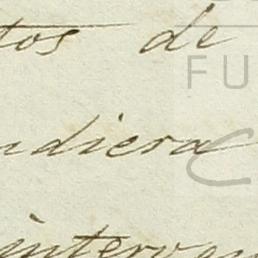 tos de
FU
ndiera
interven